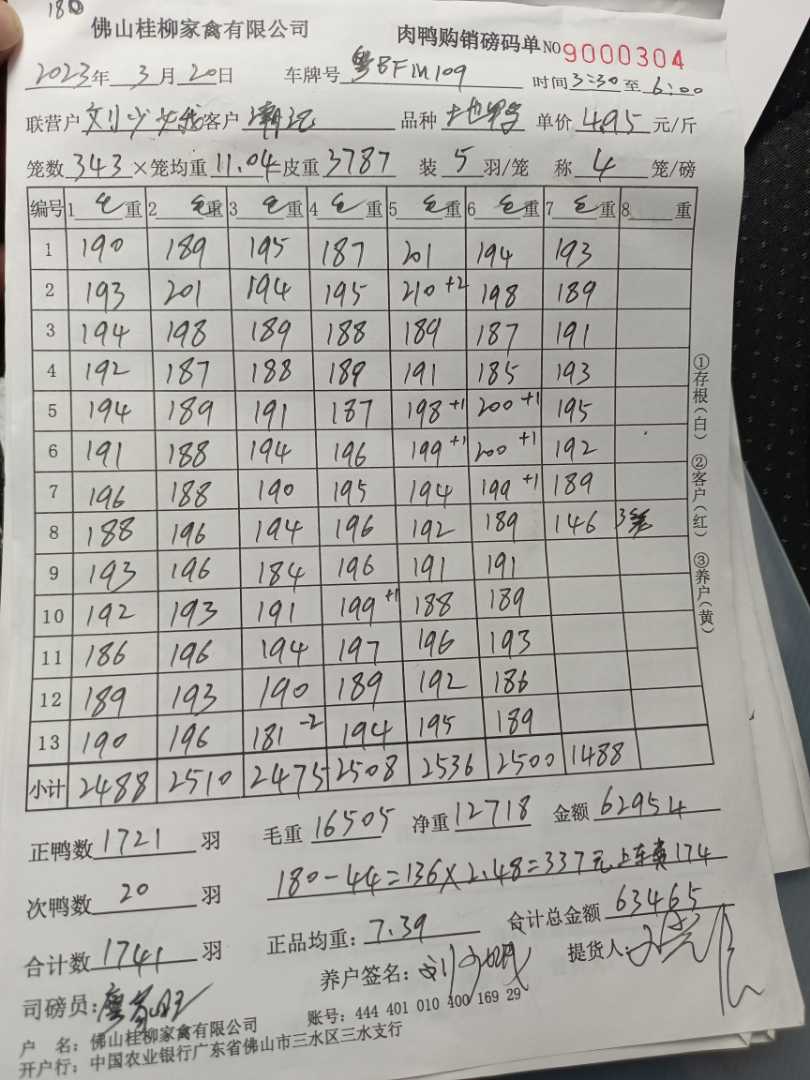 180
佛山桂柳家禽有限公司 肉鸭购销磅码单 NO 9000304
2023年 3月 20日 车牌号 粤BFM109 时间 3:30 至 6:00
联营户 刘少 客户 品种 土地鸭 单价 4.95 元/斤
笼数 343 ×笼均重 11.04 皮重 3787 装 5 羽/笼 称 4 笼/磅
编号 1 毛重 2 毛重 3 毛重 4 毛重 5 毛重 6 毛重 7 毛重 8 重
1 190 189 195 187 201 194 193
2 193 201 194 195 210+2 198 189
3 194 198 189 188 189 187 191
4 192 187 188 189 191 185 193
5 194 189 191 187 198+1 200+1 195
6 191 188 194 196 199+1 200+1 192
7 196 188 190 195 194 199+1 189
8 188 196 194 196 192 189 146 3笼
9 193 196 184 196 191 191
10 192 193 191 199+1 188 189
11 186 196 194 197 196 193
12 189 193 190 189 192 186
13 190 196 181-2 194 195 189
小计 2488 2510 2475 2508 2536 2500 1488
正鸭数 1721 羽 毛重 16505 净重 12718 金额 62954
180-44=136×2.48=337元 上车费174
次鸭数 20 羽
正品均重: 7.39 合计总金额 63465
合计数 1741 羽
养户签名: 提货人:
司磅员:
户 名: 佛山桂柳家禽有限公司 账号: 444 401 010 400 169 29
开户行: 中国农业银行广东省佛山市三水区三水支行
①存根(白) ②客户(红) ③养户(黄)